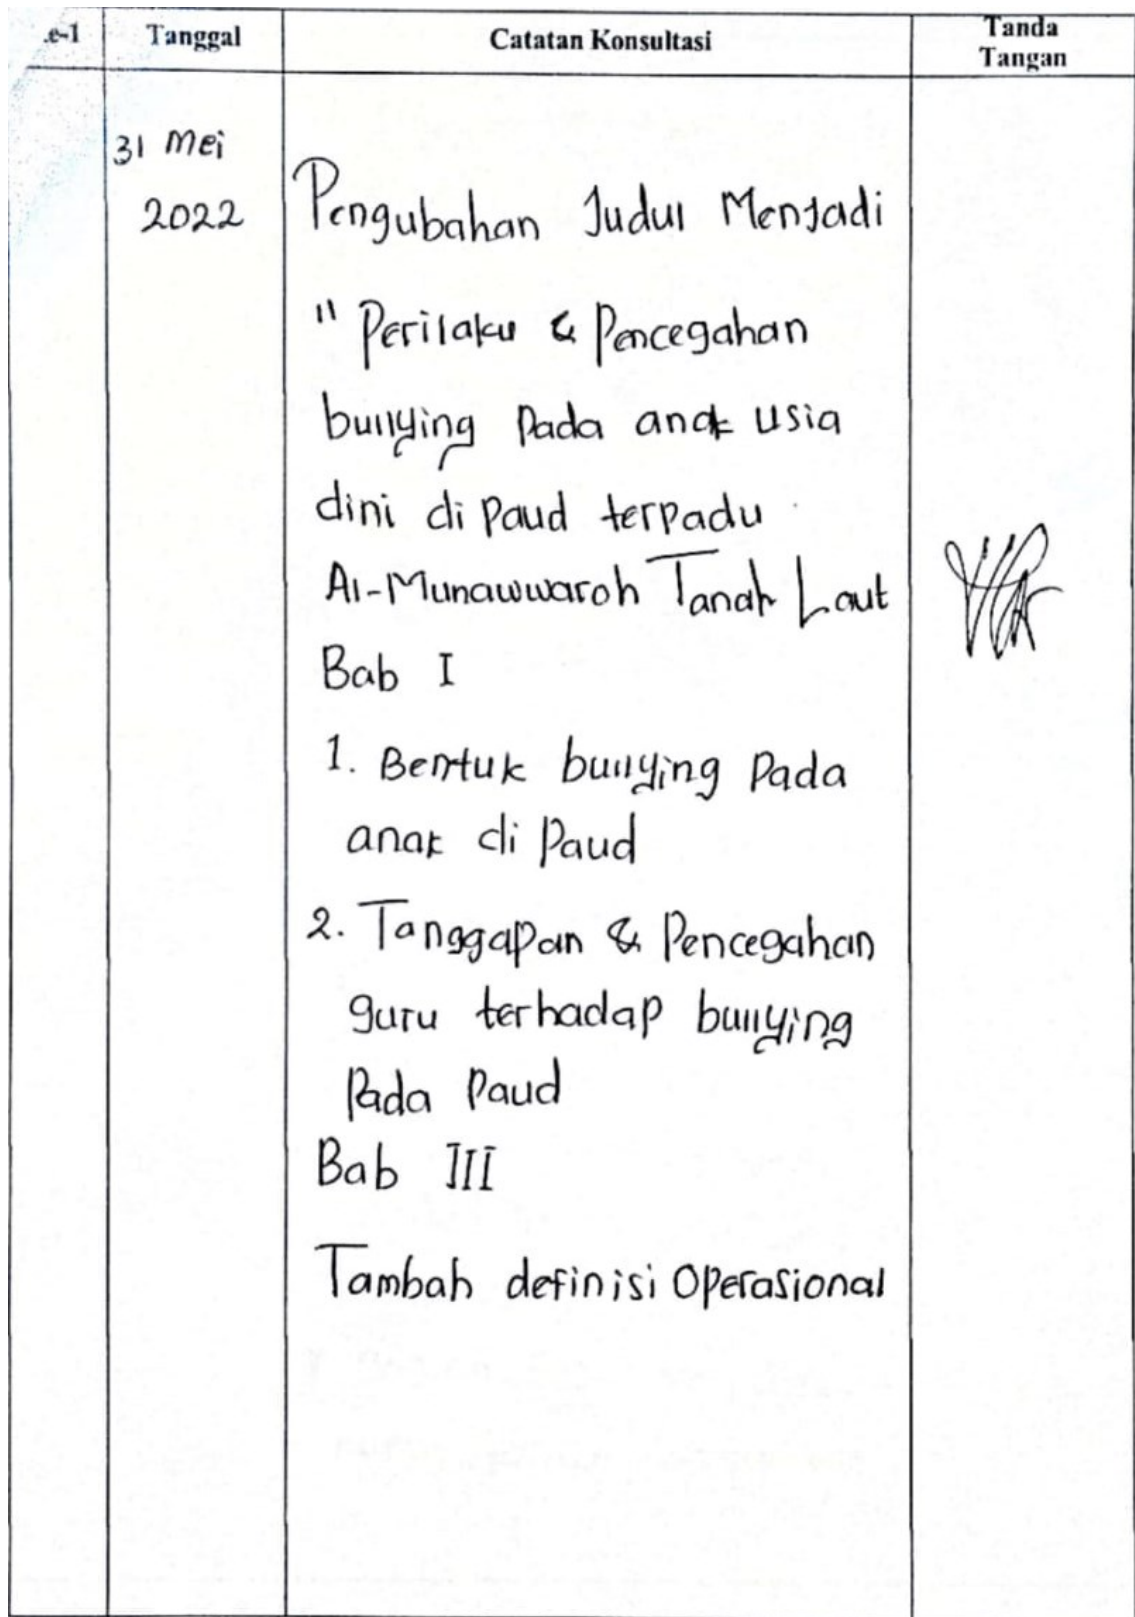 e-1 Tanggal Catatan Konsultasi Tanda
Tangan
31 Mei
2022 Pengubahan Judul Menjadi
" Perilaku & Pencegahan
bullying Pada anak usia
dini di Paud terpadu
Al-Munawwaroh Tanah Laut
Bab I
1. Bentuk bullying Pada
anak di Paud
2. Tanggapan & Pencegahan
guru terhadap bullying
Pada Paud
Bab III
Tambah definisi Operasional